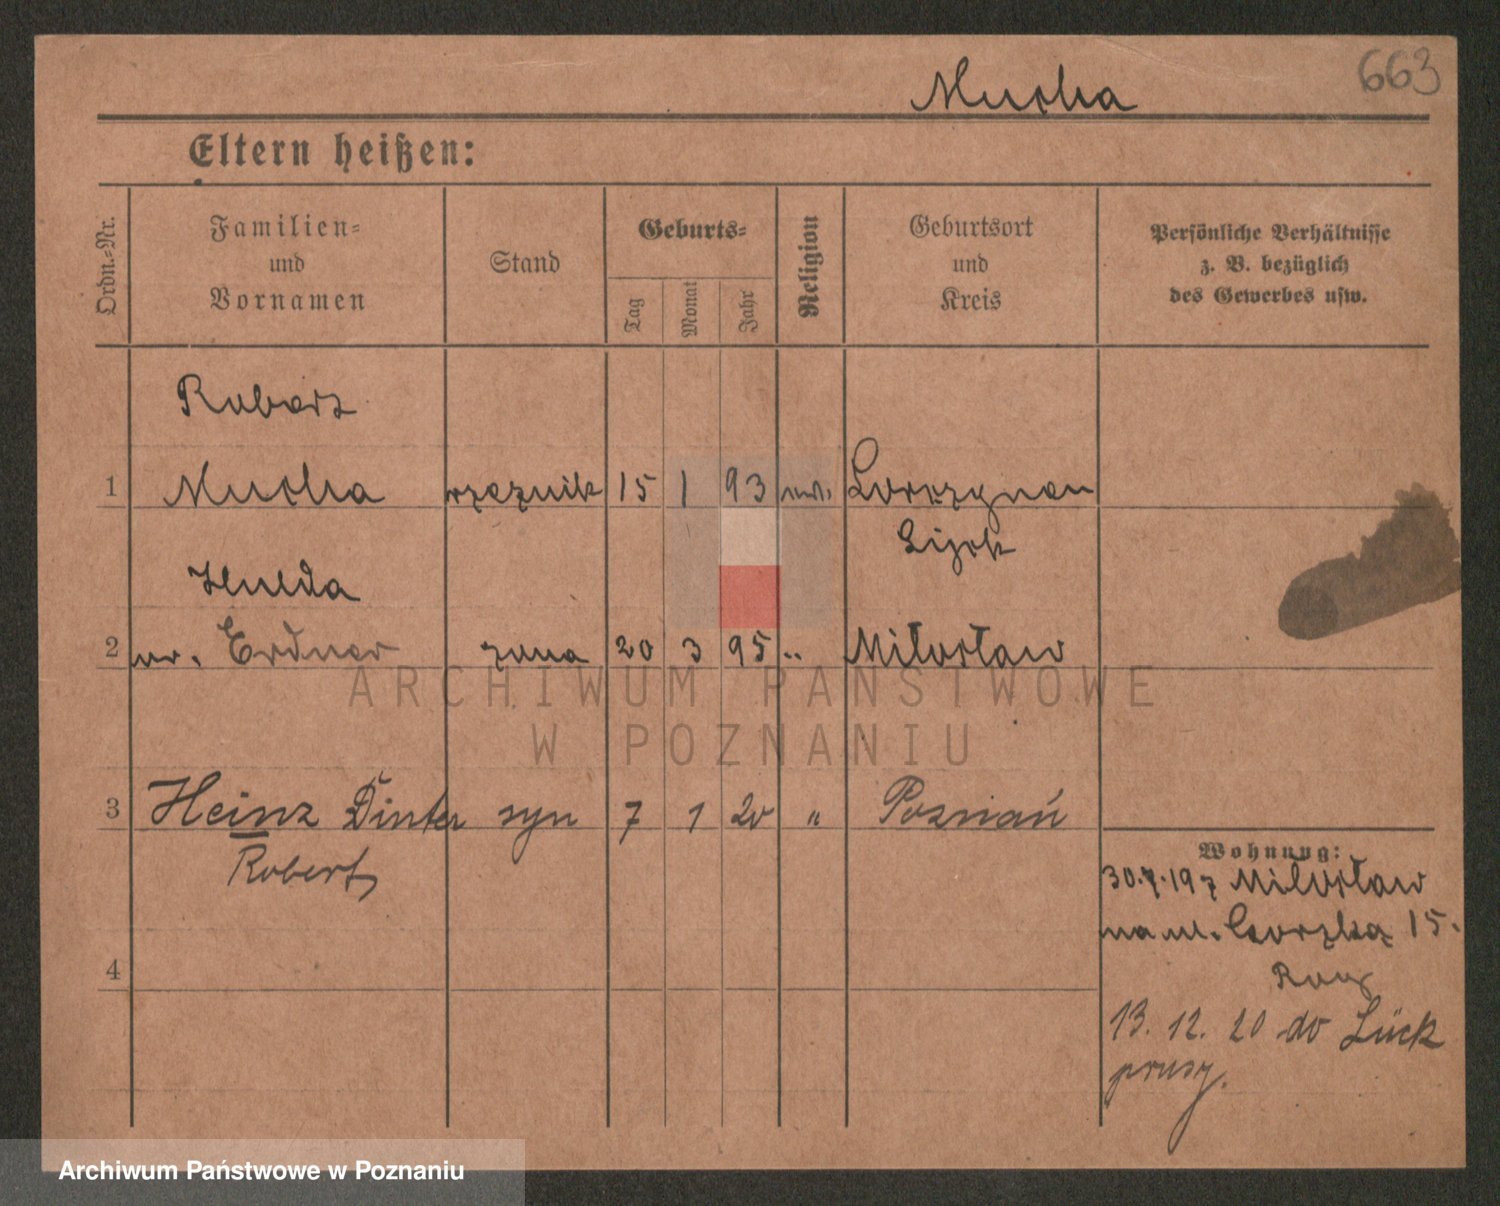 663
Mucha
Eltern heißen:
Ordn.-Nr.
Familien=
und
Vornamen
Stand
Geburts=
Tag
Monat
Jahr
Religion
Geburtsort
und
Kreis
Persönliche Verhältnisse
z. B. bezüglich
des Gewerbes usw.
Robert
1 Mucha rzeznik 15 1 93
Hulda
2 ur. Erdner zona 20 3 95 " Miłosław
3 Heinz Dinter syn 7 1 20 " Poznań
Robert
Wohnung:
Miłosław
na ul. 15.
4
13. 12. 20 do Lück
prusy.
ARCHIWUM PAŃSTWOWE
W POZNANIU
Archiwum Państwowe w Poznaniu